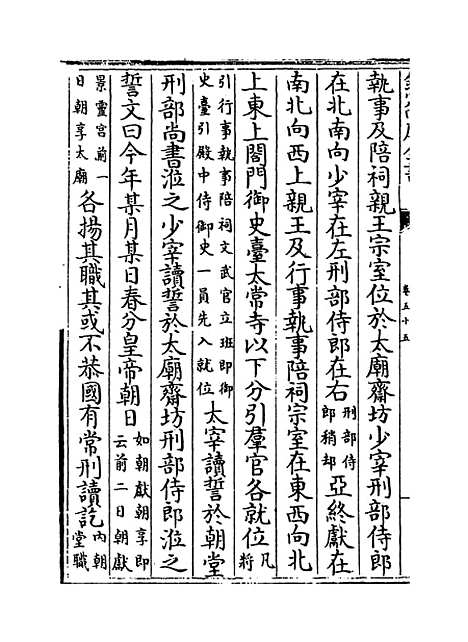 欽定四庫全書
卷五十五
執事及陪祠親王宗室位於太廟齋坊少宰刑部侍郎
在北南向少宰在左刑部侍郎在右刑部侍郎稍却亞終獻在
南北向西上親王及行事執事陪祠宗室在東西向北
上東上閤門御史臺太常寺以下分引羣官各就位凡將
引行事執事陪祠文武官立班即御史臺引殿中侍御史一員先入就位太宰讀誓於朝堂
刑部尚書涖之少宰讀誓於太廟齋坊刑部侍郎涖之
誓文曰今年某月某日春分皇帝朝日如朝獻朝享即云前二日朝獻
景靈宮前一日朝享太廟各揚其職其或不恭國有常刑讀訖内朝堂職